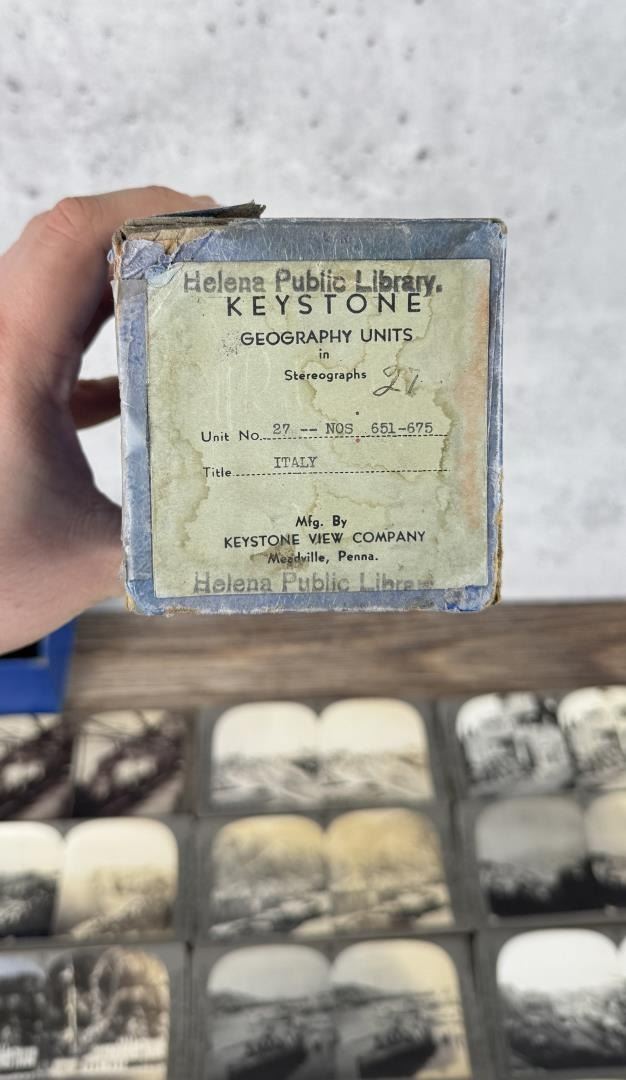 Helena Public Library.
KEYSTONE
GEOGRAPHY UNITS
in
Stereographs 27
Unit No. 27 -- NOS 651-675
Title ITALY
Mfg. By
KEYSTONE VIEW COMPANY
Meadville, Penna.
Helena Public Librar